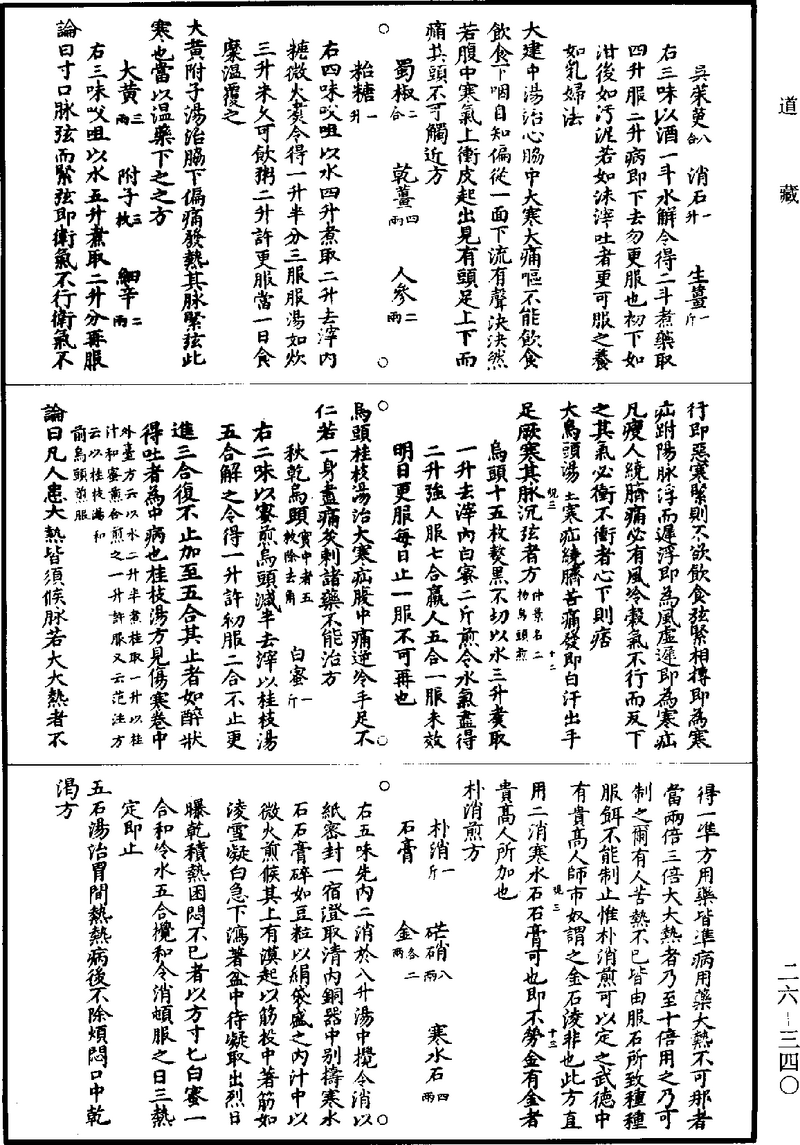 道藏
吳茱萸八合　消石一升　生薑一斤
右三味以酒一斗水解令得二斗煮藥取
四升服二升病即下去勿更服也初下如
泔後如污泥若如沫滓吐者更可服之養
如乳婦法
大建中湯治心脇中大寒大痛嘔不能飲食
飲食下咽自知偏從一面下流有聲決決然
若腹中寒氣上衝皮起出見有頭足上下而
痛其頭不可觸近方
蜀椒二合　乾薑四兩　人參二兩
粭糖一升
右四味㕮咀以水四升煮取二升去滓內
糖微火煮令得一升半分三服服湯如炊
三升米久可飲粥二升許更服當一日食
糜溫覆之
大黃附子湯治脇下偏痛發熱其脉緊弦此
寒也當以溫藥下之之方
大黃三兩　附子三枚　細辛二兩
右三味㕮咀以水五升煮取二升分再服
論曰寸口脉弦而緊弦即衛氣不行衛氣不
行即惡寒緊則不欲飲食弦緊相搏即為寒
疝趺陽脉浮而遲浮即為風虛遲即為寒疝
凡瘦人繞臍痛必有風冷穀氣不行而反下
之其氣必衝不衝者心下則痞
大烏頭湯主寒疝繞臍苦痛發即白汗出手
足厥寒其脉沉弦者方仲景名二物烏頭煎
烏頭十五枚熬黑不切以水三升煮取
一升去滓內白蜜二斤煎令水氣盡得
二升強人服七合羸人五合一服未效
明日更服每日止一服不可再也
烏頭桂枝湯治大寒疝腹中痛逆冷手足不
仁若一身盡痛灸刺諸藥不能治方
秋乾烏頭實中者五枚除去角　白蜜一斤
右二味以蜜煎烏頭減半去滓以桂枝湯
五合解之令得一升許初服二合不止更
進三合復不止加至五合其止者如醉狀
得吐者為中病也桂枝湯方見傷寒卷中
外臺方云以水二升半煮桂取一升以桂
汁和蜜煎合煎之一升許服又云范汪方
云以桂枝湯和
前烏頭煎服
論曰凡人患大熱皆須候脉若大大熱者不
得一準方用藥皆準病用藥大熱不可那者
當兩倍三倍大大熱者乃至十倍用之乃可
制之爾有人苦熱不已皆由服石所致種種
服餌不能制止惟朴消煎可以定之武德中
有貴高人師市奴謂之金石淩非也此方直
用二消寒水石石膏可也即不勞金有金者
貴高人所加也
朴消煎方
朴消一斤　芒硝八兩　寒水石四兩
石膏　金各二兩
右五味先內二消於八升湯中攪令消以
紙密封一宿澄取清內銅器中別擣寒水
石石膏碎如豆粒以絹袋盛之內汁中以
微火煎候其上有漠起以筋投中著筋如
淩雪凝白急下瀉著盆中待凝取出烈日
曝乾積熱困悶不已者以方寸匕白蜜一
合和冷水五合攪和令消頓服之日三熱
定即止
五石湯治胃間熱熱病後不除煩悶口中乾
渴方
二六－三四〇